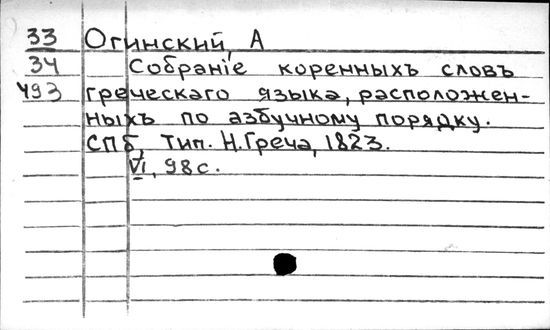 33 Огинский, А
34 Собраніе коренныхъ словъ
493 греческаго языка, расположен-
ныхъ по азбучному порядку.
СПб, Тип. Н. Греча, 1823.
VI, 98 с.